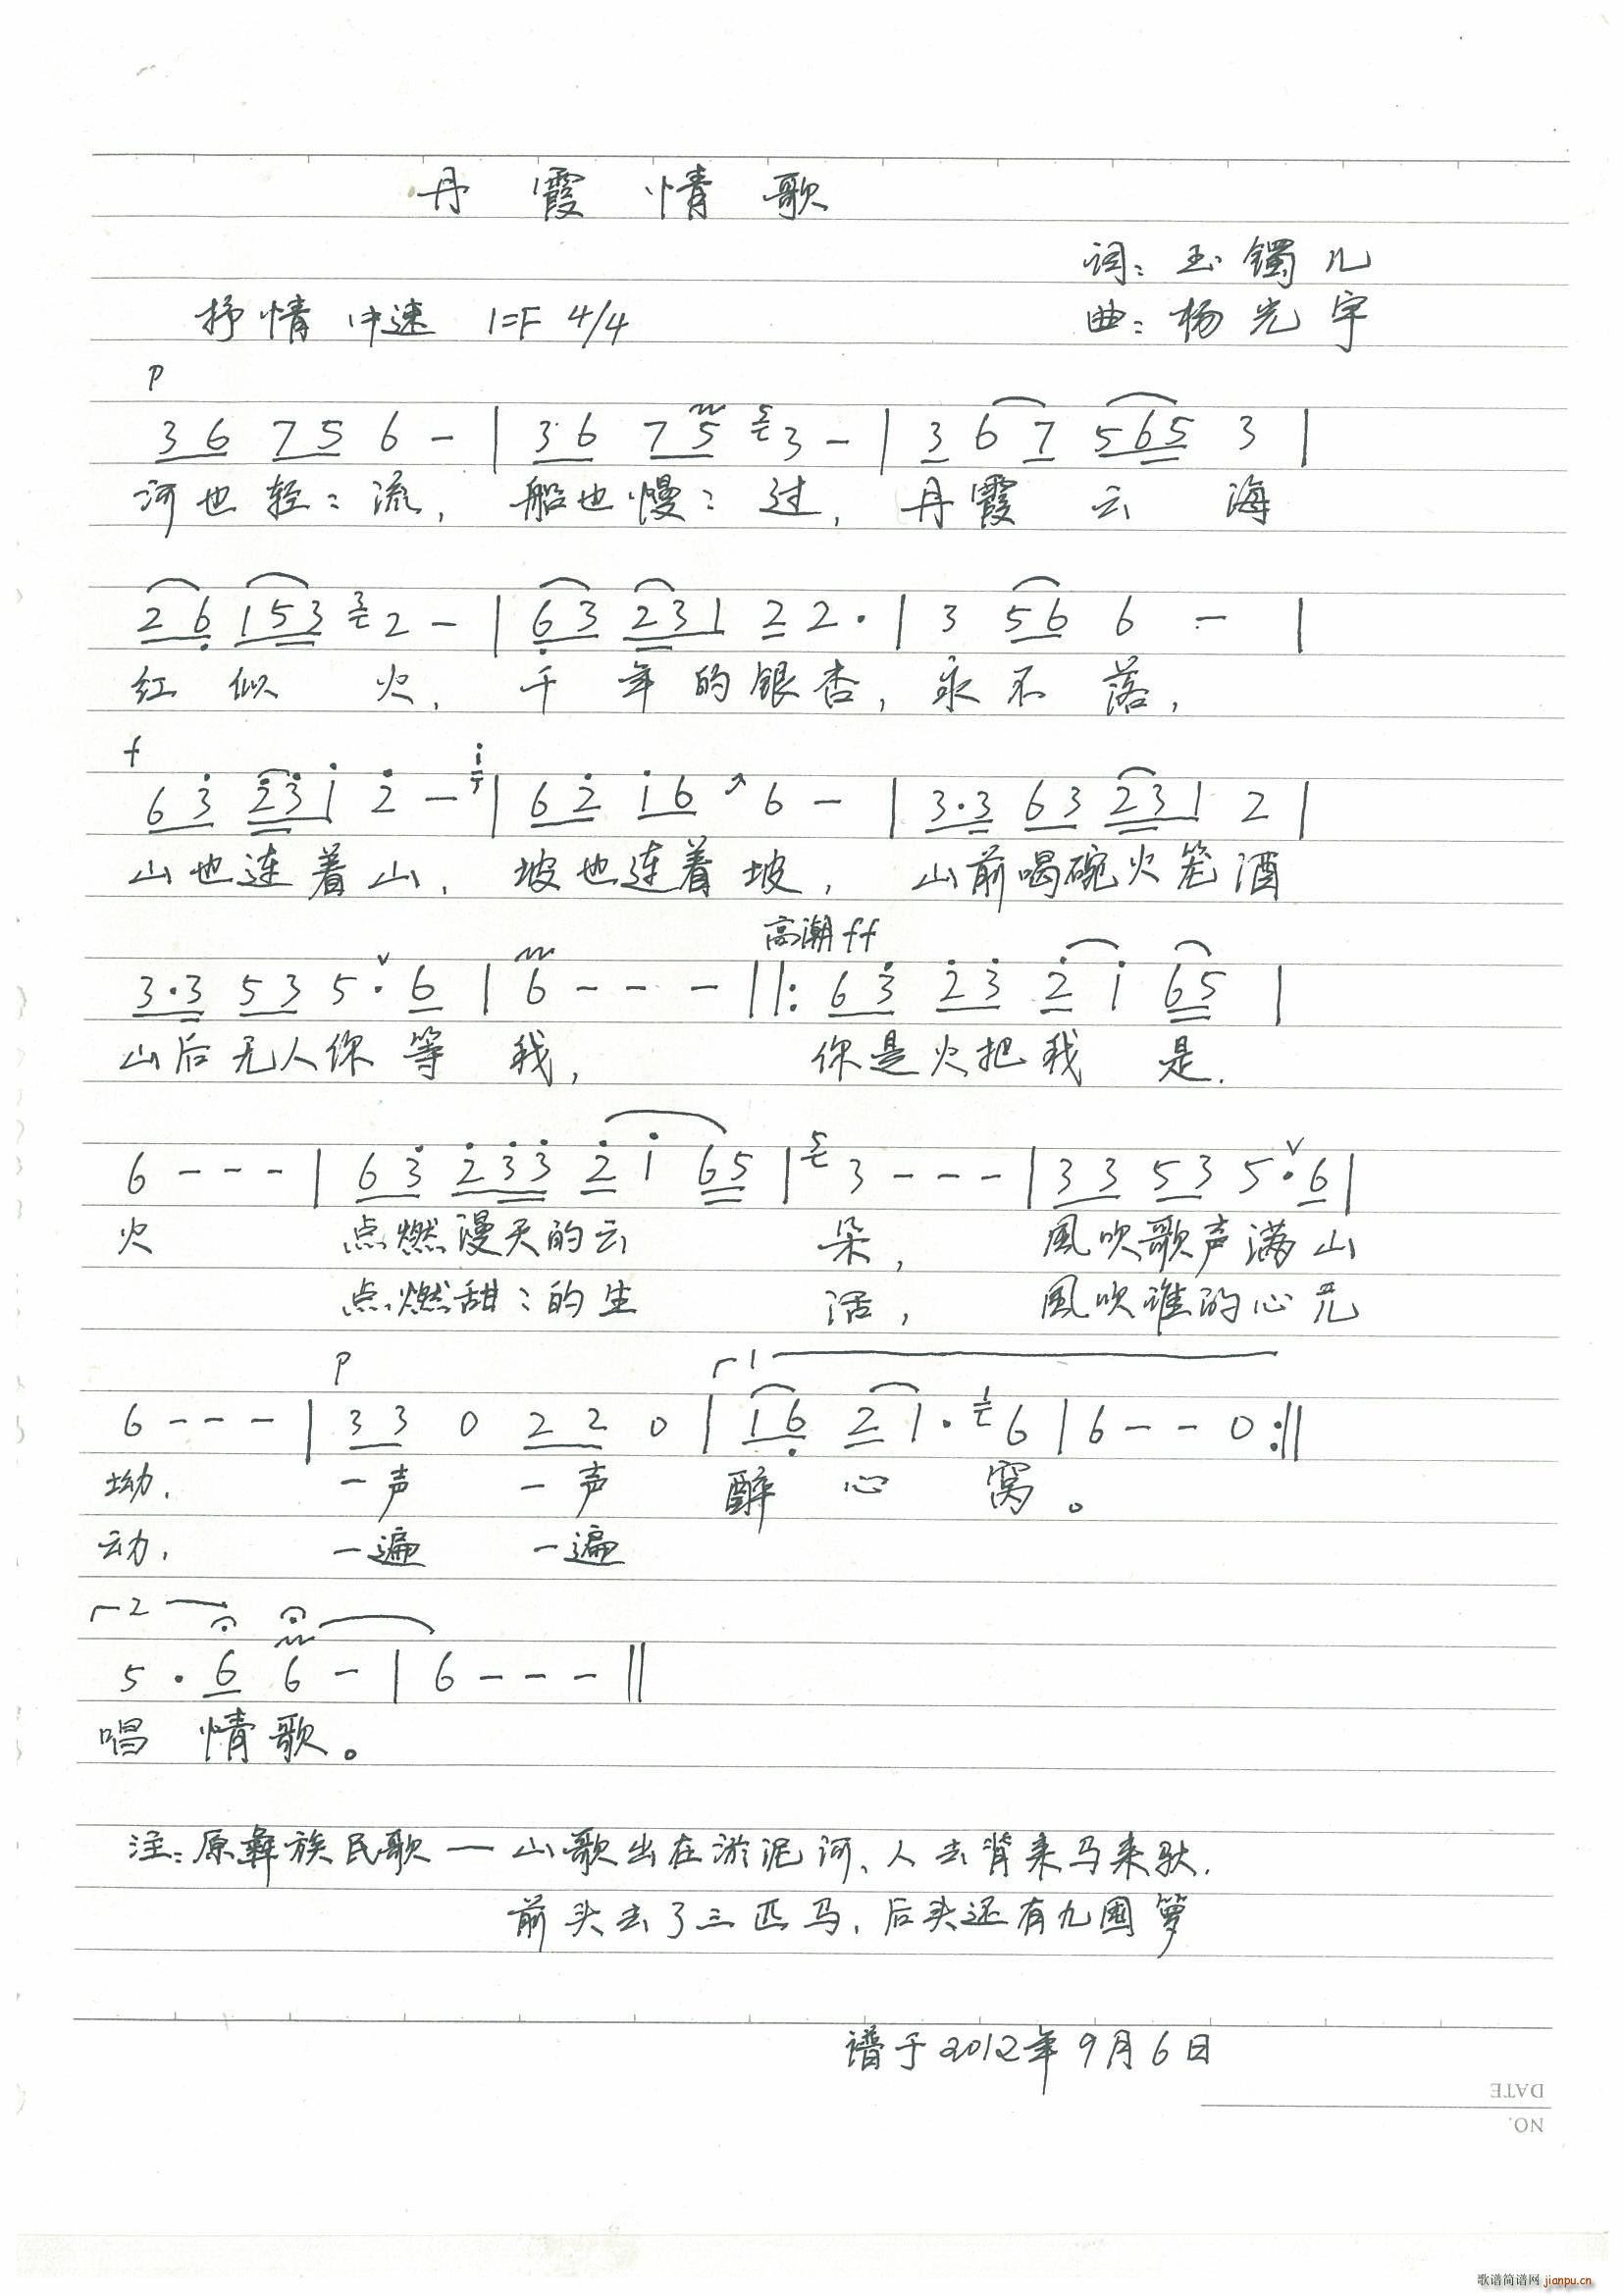 丹霞情歌
词：玉镯儿
抒情 中速 1=F 4/4
曲：杨光宇
p
3 6 7 5 6 - | 3 6 7 5 5 3 - | 3 6 7 5 6 5 3 |
河也轻：流，船也慢：过，丹霞云海
2 6 1 5 3 3 2 - | 6 3 2 3 1 2 2 · | 3 5 6 6 - |
红似火，千年的银杏，永不落，
f
6 3 2 3 1 2 - i | 6 2 1 6 ↗ 6 - | 3 · 3 6 3 2 3 1 2 |
山也连着山，坡也连着坡，山前喝碗火笼酒
高潮 ff
3 · 3 5 3 5 · 6 | 6 - - - ||: 6 3 2 3 2 1 6 5 |
山后无人你等我，你是火把我是.
6 - - - | 6 3 2 3 3 2 1 6 5 | 5 3 - - - | 3 3 5 3 5 · 6 |
火 点燃漫天的云朵，風吹歌声满山
点燃甜：的生活，風吹谁的心儿
p ┌1
6 - - - | 3 3 0 2 2 0 | 1 6 2 1 · 1 6 | 6 - - 0 :||
坳. 一声 一声 醉心窝。
动. 一遍 一遍
┌2
5 · 6 6 - | 6 - - - ||
唱情歌。
注：原彝族民歌 — 山歌出在淤泥河、人去背来马来驮.
前头去了三匹马，后头还有九围箩
谱于2012年9月6日
DATE
NO.
歌谱简谱网 jianpu.cn